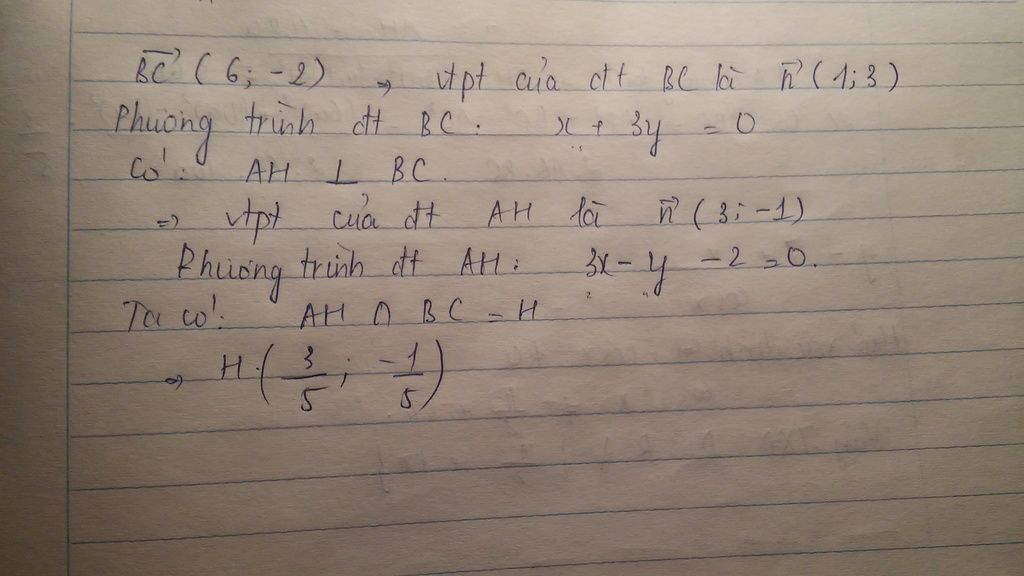 BC→ (6; -2) => vtpt của đt BC là n→ (1; 3)
Phương trình đt BC: x + 3y = 0
Có: AH ⊥ BC.
=> vtpt của đt AH là n→ (3; -1)
Phương trình đt AH: 3x - y - 2 = 0.
Ta có: AH ∩ BC = H
=> H (3/5; -1/5)